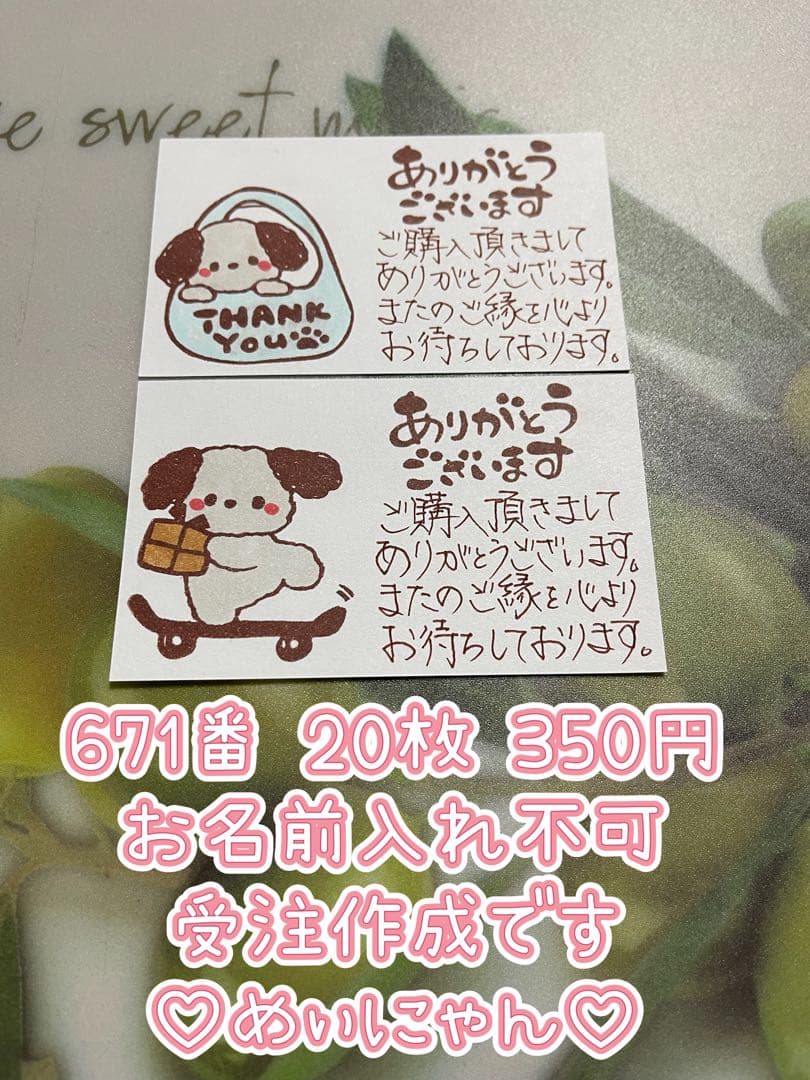 sweet
ありがとう
ございます
ご購入頂きまして
ありがとうございます。
またのご縁を心より
お待ちしております。
THANK
YOU
ありがとう
ございます
ご購入頂きまして
ありがとうございます。
またのご縁を心より
お待ちしております。
671番 20枚 350円
お名前入れ不可
受注作成です
♡めぃにゃん♡